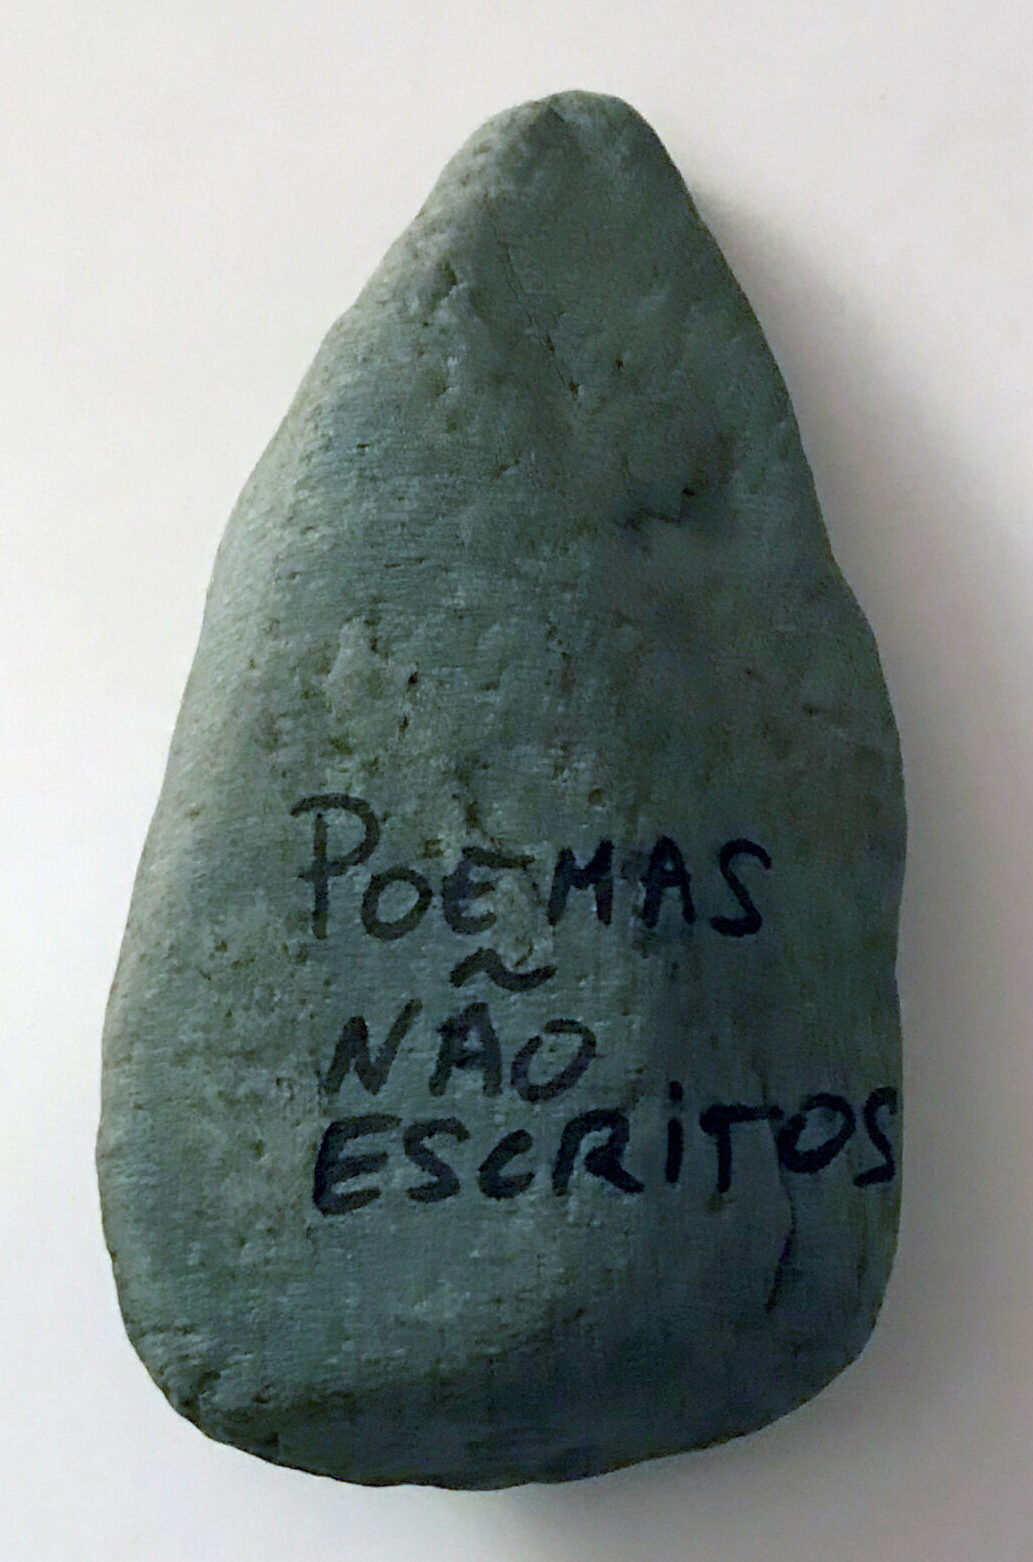 POEMAS
NÃO
ESCRiTOS